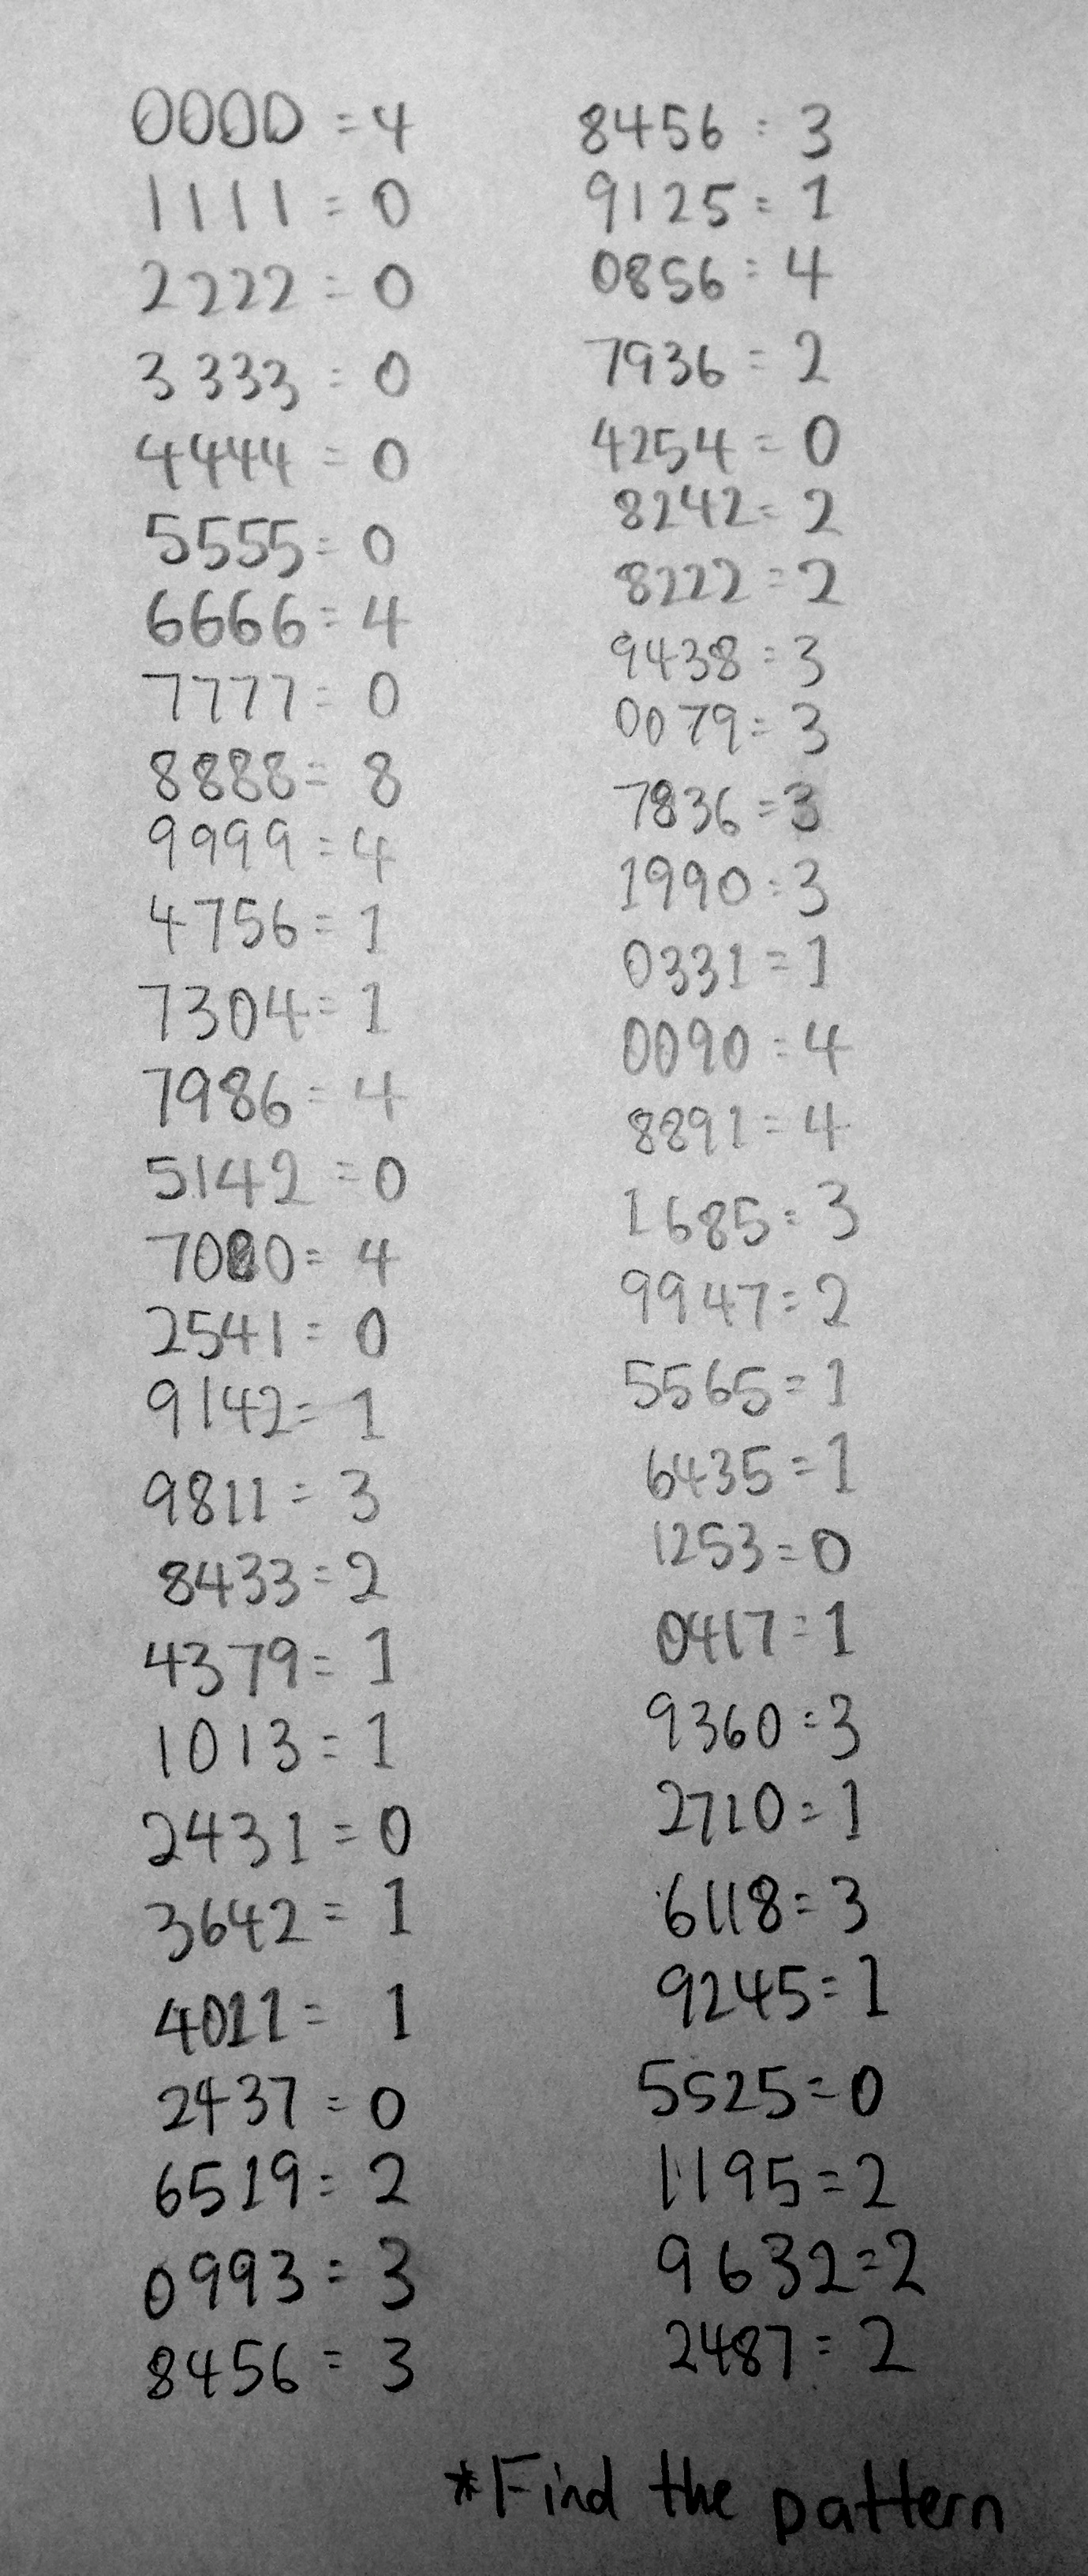 0000 = 4
1111 = 0
2222 = 0
3333 = 0
4444 = 0
5555 = 0
6666 = 4
7777 = 0
8888 = 8
9999 = 4
4756 = 1
7304 = 1
7986 = 4
5142 = 0
7080 = 4
2541 = 0
9142 = 1
9811 = 3
8433 = 2
4379 = 1
1013 = 1
2431 = 0
3642 = 1
4011 = 1
2437 = 0
6519 = 2
0993 = 3
8456 = 3
8456 = 3
9125 = 1
0856 = 4
7936 = 2
4254 = 0
8242 = 2
8222 = 2
9438 = 3
0079 = 3
7836 = 3
1990 = 3
0331 = 1
0090 = 4
8891 = 4
1685 = 3
9947 = 2
5565 = 1
6435 = 1
1253 = 0
0417 = 1
9360 = 3
2710 = 1
6118 = 3
9245 = 1
5525 = 0
1195 = 2
9632 = 2
2487 = 2
*Find the pattern